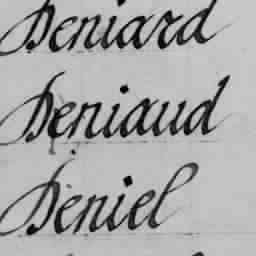 Deniard
Deniaud
Deniel